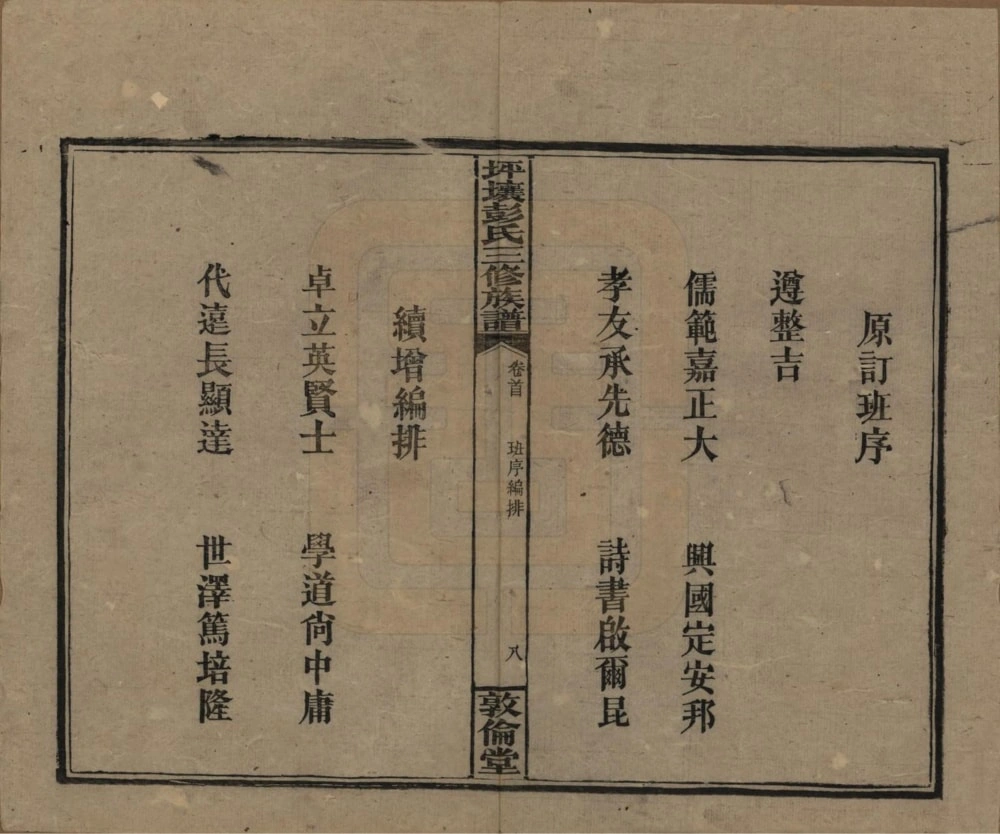 原訂班序
遵整吉
儒範嘉正大　興國定安邦
孝友承先德　詩書啟爾昆
坪壤彭氏三修族譜　卷首　班序編排　八　敦倫堂
續增編排
卓立英賢士　學道尙中庸
代遠長顯達　世澤篤培隆